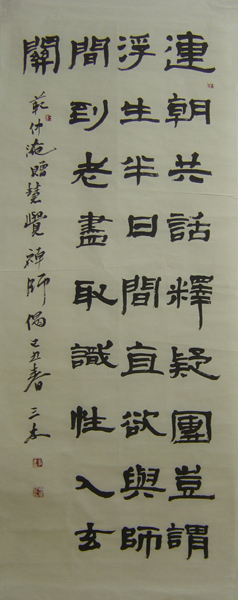 連朝共話釋疑團豈謂
浮生半日間直欲與師
間到老盡取識性入玄
關
范仲淹贈慧覺禪師偈己丑春三志